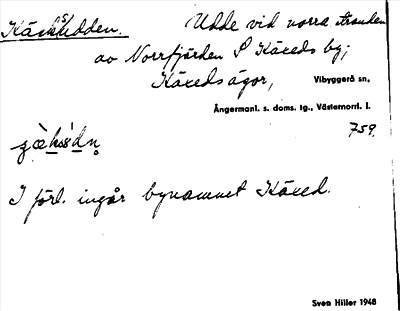 Käxsudden. Udde vid norra stranden
av Norrfjärden S Käxeds by;
Käxeds ägor, Vibyggerå sn,
Ångermanl. s. doms. tg., Västernorrl. l.
759.
I förl. ingår bynamnet Käxed.
Sven Hiller 1948